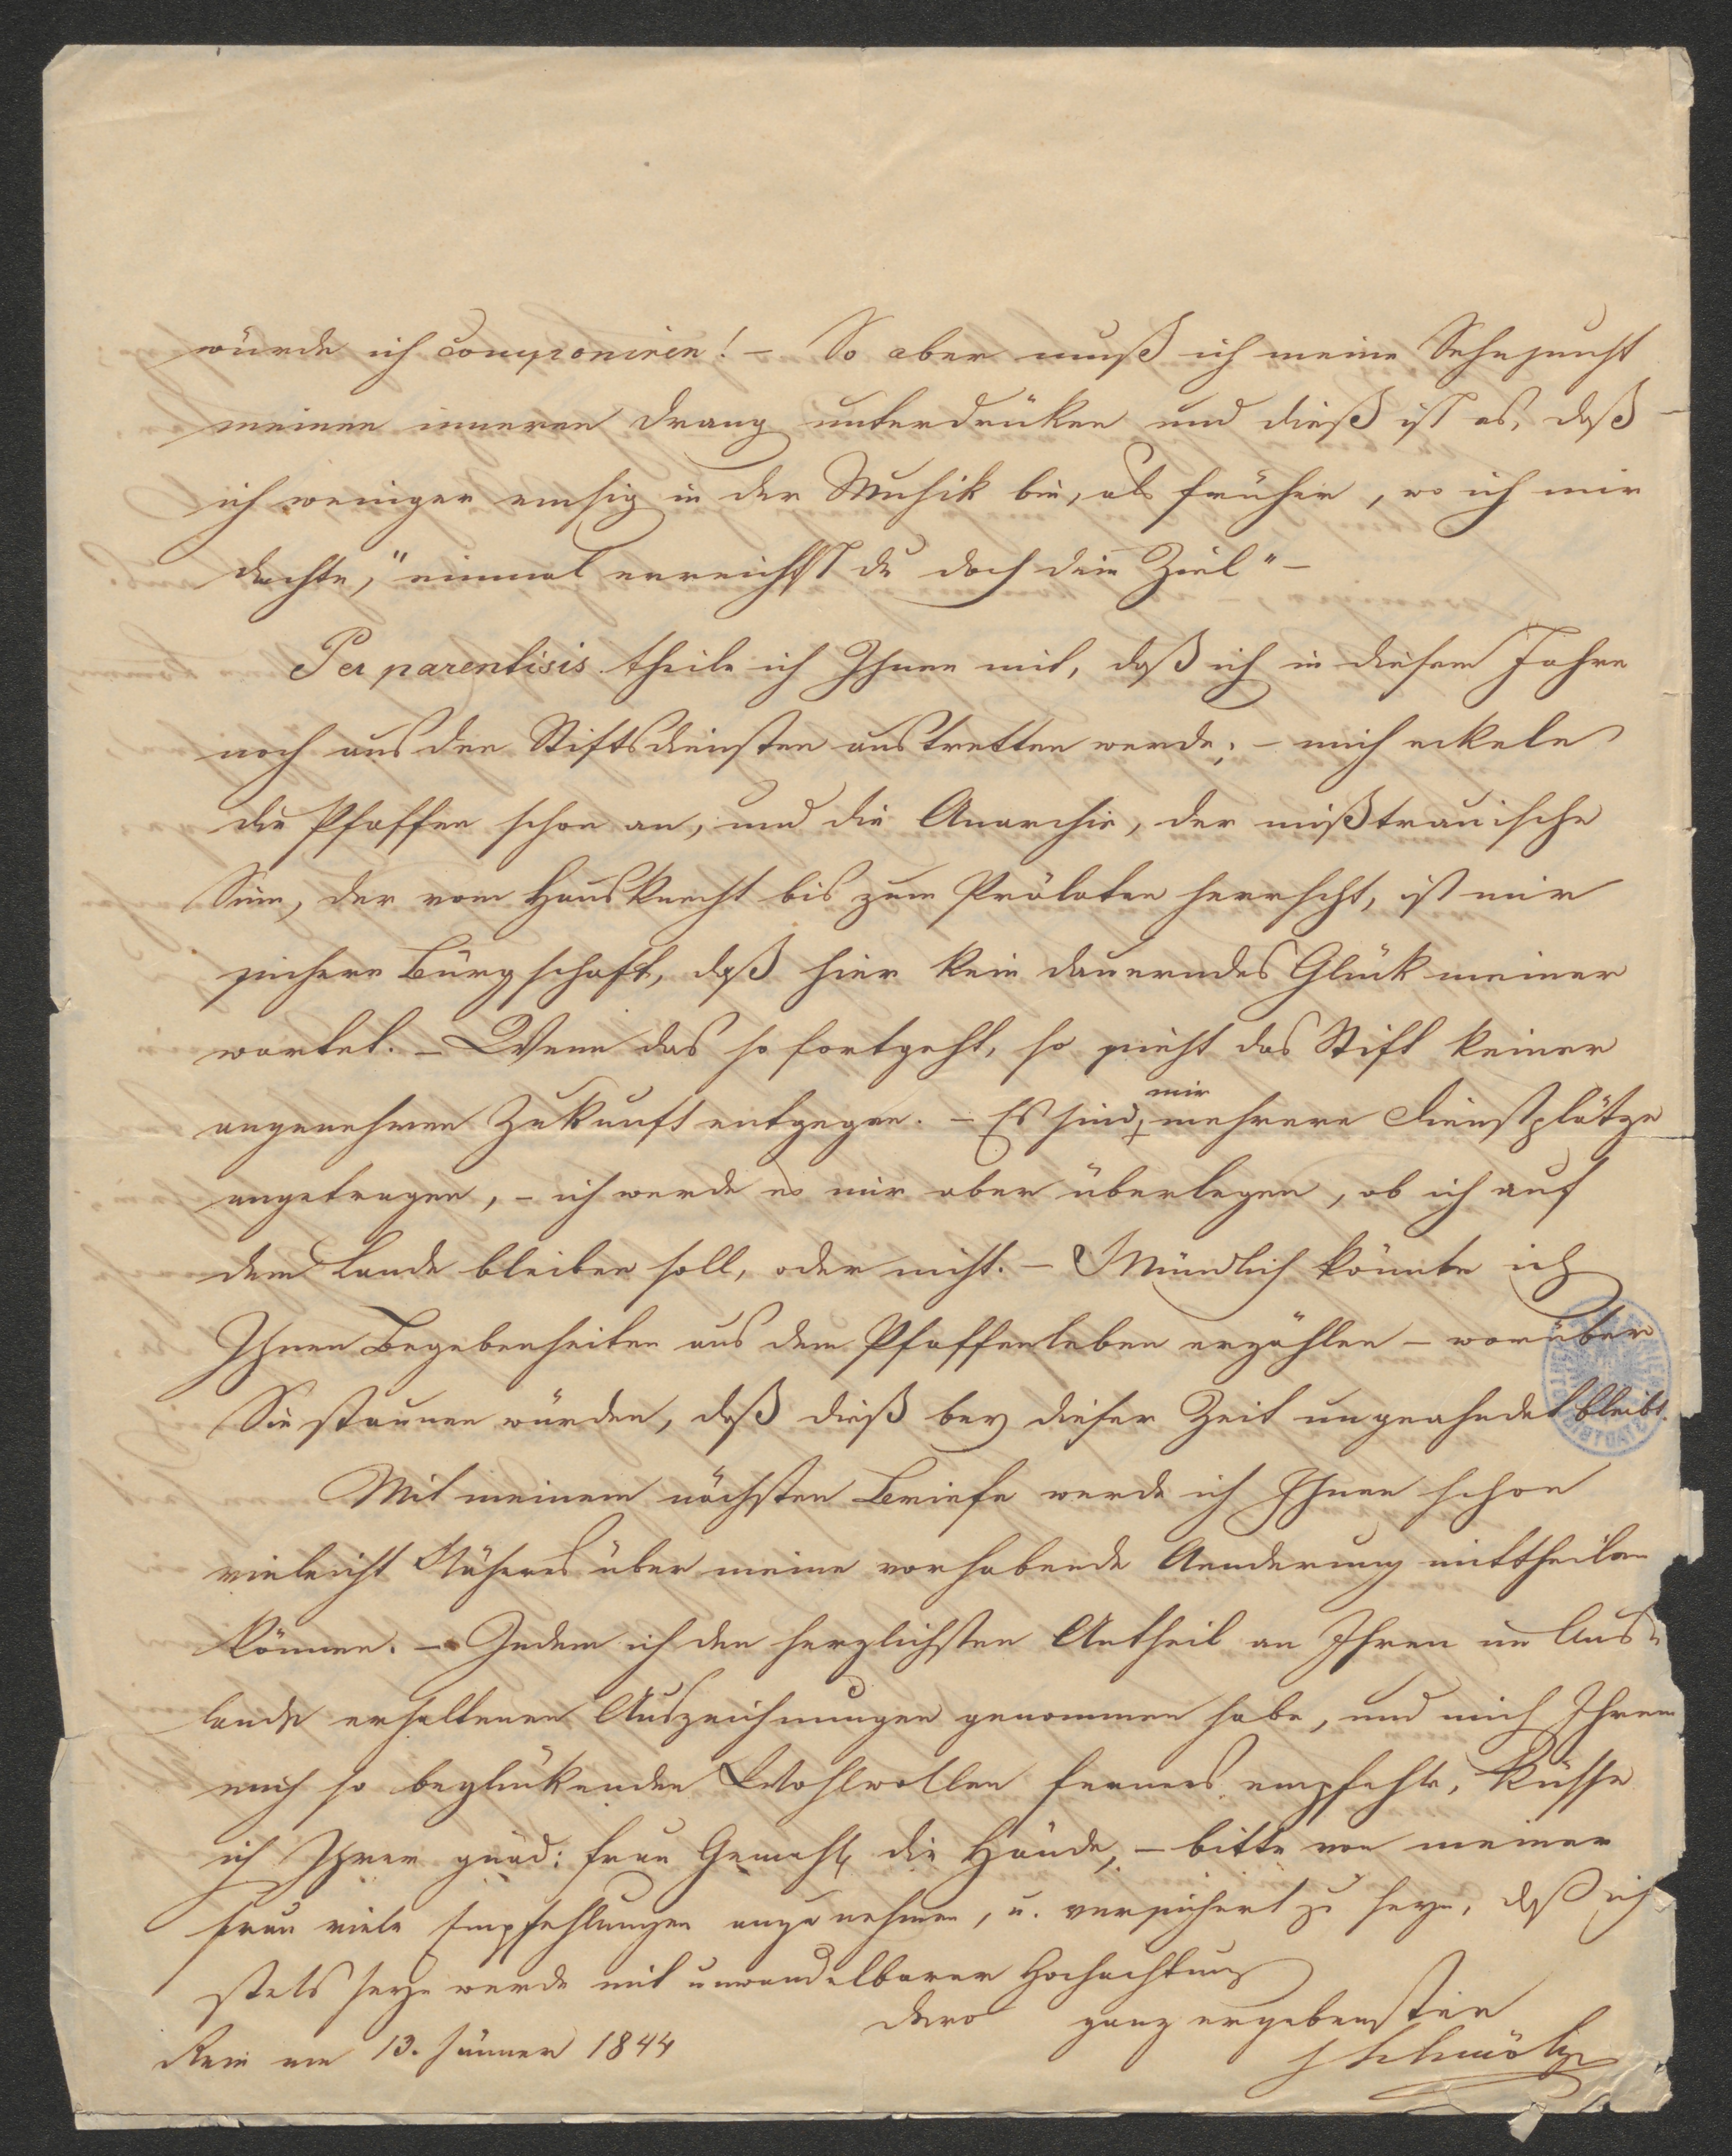 würde ich componiren! – So aber muß ich meine Sehnsucht
meinen inneren Drang unterdrüken und dieß ist es, daß
ich weniger emsig in der Musik bin, als früher, wo ich mir
dachte, "einmal erreichst du doch dein Ziel" –
Per parentisis theile ich Ihnen mit, daß ich in diesem Jahre
noch aus den Stiftsdiensten austretten werde; – mich eckeln
die Pfaffen schon an, und die Anarchie, der mißtrauische
Sinn, der vom Hausknecht bis zum Prälaten herrscht, ist mir
sichere Bürgschaft, daß hier kein dauerndes Glück meiner
wartet. – Wenn das so fortgeht, so sieht das Stift keiner
angenehmen Zukunft entgegen. – Es sind mir mehrere Dienstplätze
angetragen, – ich werde es mir aber überlegen, ob ich auf
dem Lande bleiben soll, oder nicht. – Mündlich könnte ich
Ihnen Begebenheiten aus dem Pfaffenleben erzählen – worüber
Sie staunen würden, daß dieß bey dieser Zeit ungeahndet bleibt.
Mit meinem nächsten Briefe werde ich Ihnen schon
vieleicht Näheres über meine vorhabende Aenderung mittheilen
können. – Indem ich den herzlichsten Antheil an Ihren im Aus-
lande erhaltenen Auszeichnungen genommen habe, und mich Ihrem
mich so beglückenden Wohlwollen ferners empfehle, küsse
ich Ihrer gnäd: Frau Gemahl. die Hände, – bitte von meiner
Frau viele Empfehlungen anzunehmen, u. versichert zu seyn, daß ich
stets seyn werde mit unwandelbarer Hochachtung
Dero ganz ergebenster
Rein am 13. Jänner 1844
Schmölzer